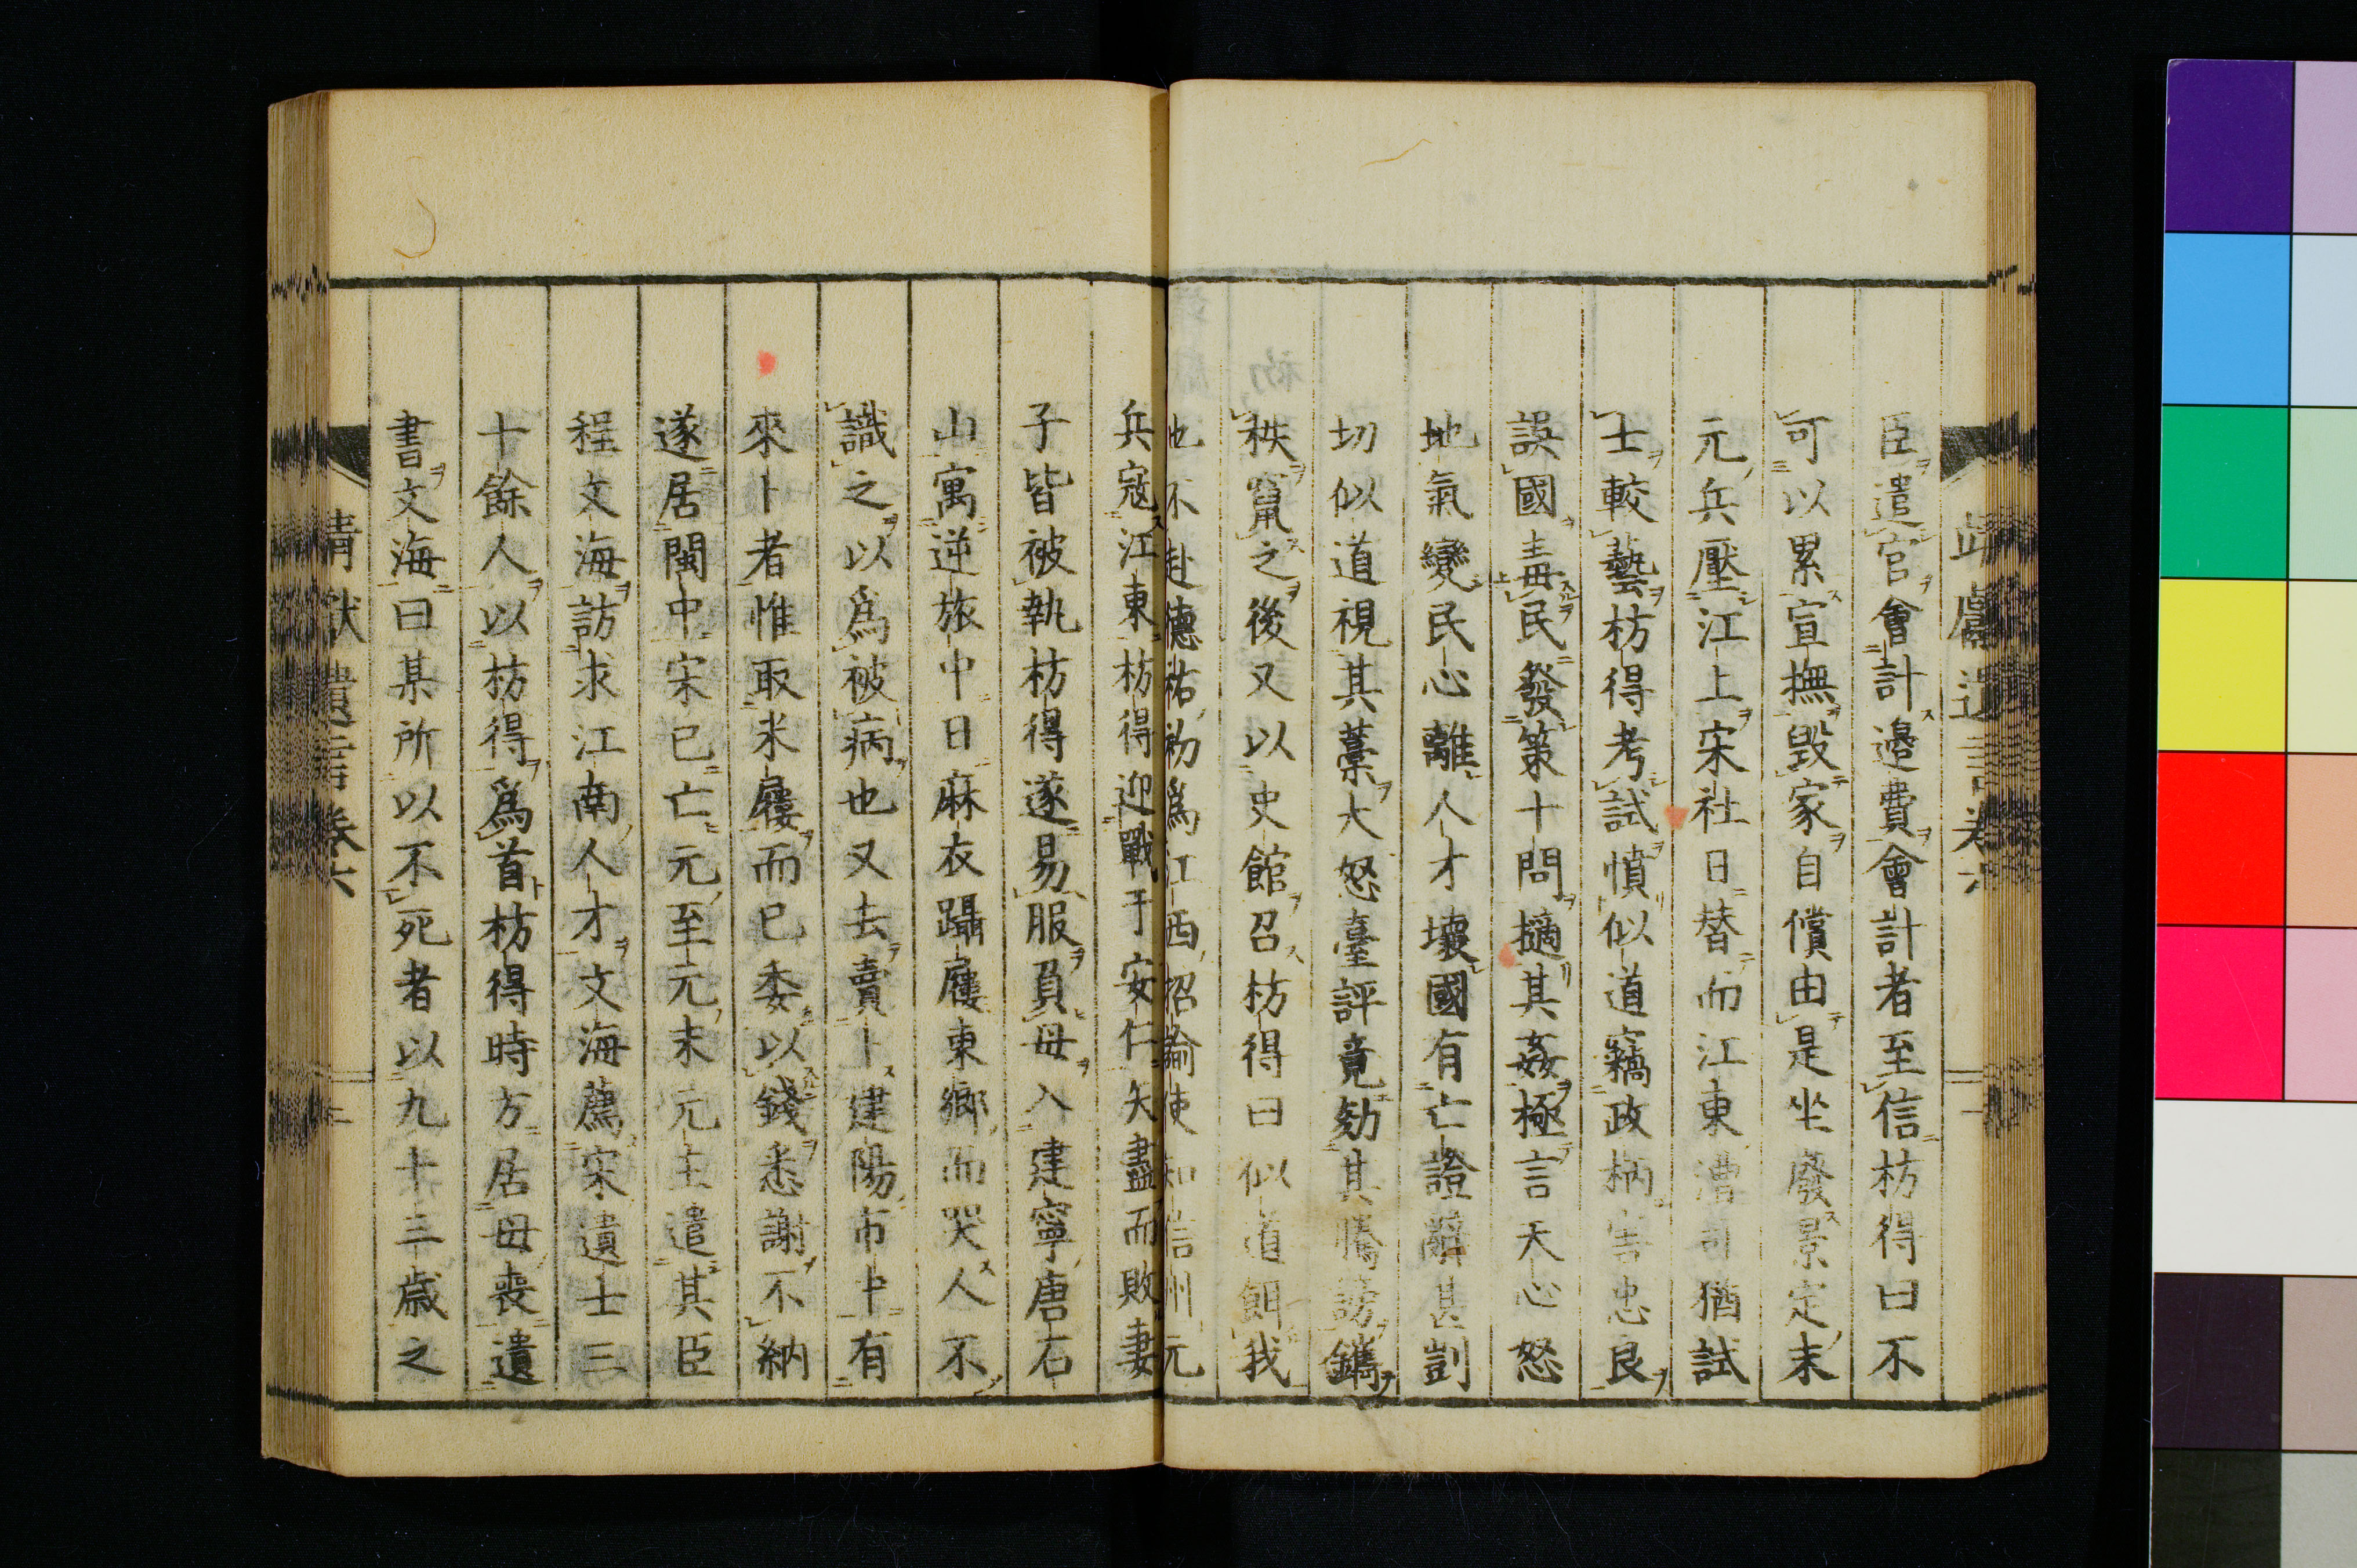 臣遣官會計邊費會計者至信枋得曰不
可以累宣撫毀家自償由是坐廢景定末
元兵壓江上宋社日替而江東漕司猶試
士較藝枋得考試憤似道竊政柄害忠良
誤國毒民發策十問擿其姦極言天心怒
地氣變民心離人才壞國有亡證辭甚剴
切似道視其藁大怒臺評竟劾其騰謗鐫
秩竄之後又以史館召枋得曰似道餌我
也不赴德祐初爲江西招諭使知信州元
兵寇江東枋得迎戰于安仁矢盡而敗妻
子皆被執枋得遂易服負母入建寧唐石
山寓逆旅中日麻衣躡屨東鄉而哭人不
識之以爲被病也又去賣卜建陽市中有
來卜者惟取米屨而已委以錢悉謝不納
遂居閩中宋已亡元至元末元主遣其臣
程文海訪求江南人才文海薦宋遺士三
十餘人以枋得爲首枋得時方居母喪遺
書文海曰某所以不死者以九十三歲之
靖獻遺言卷六 二